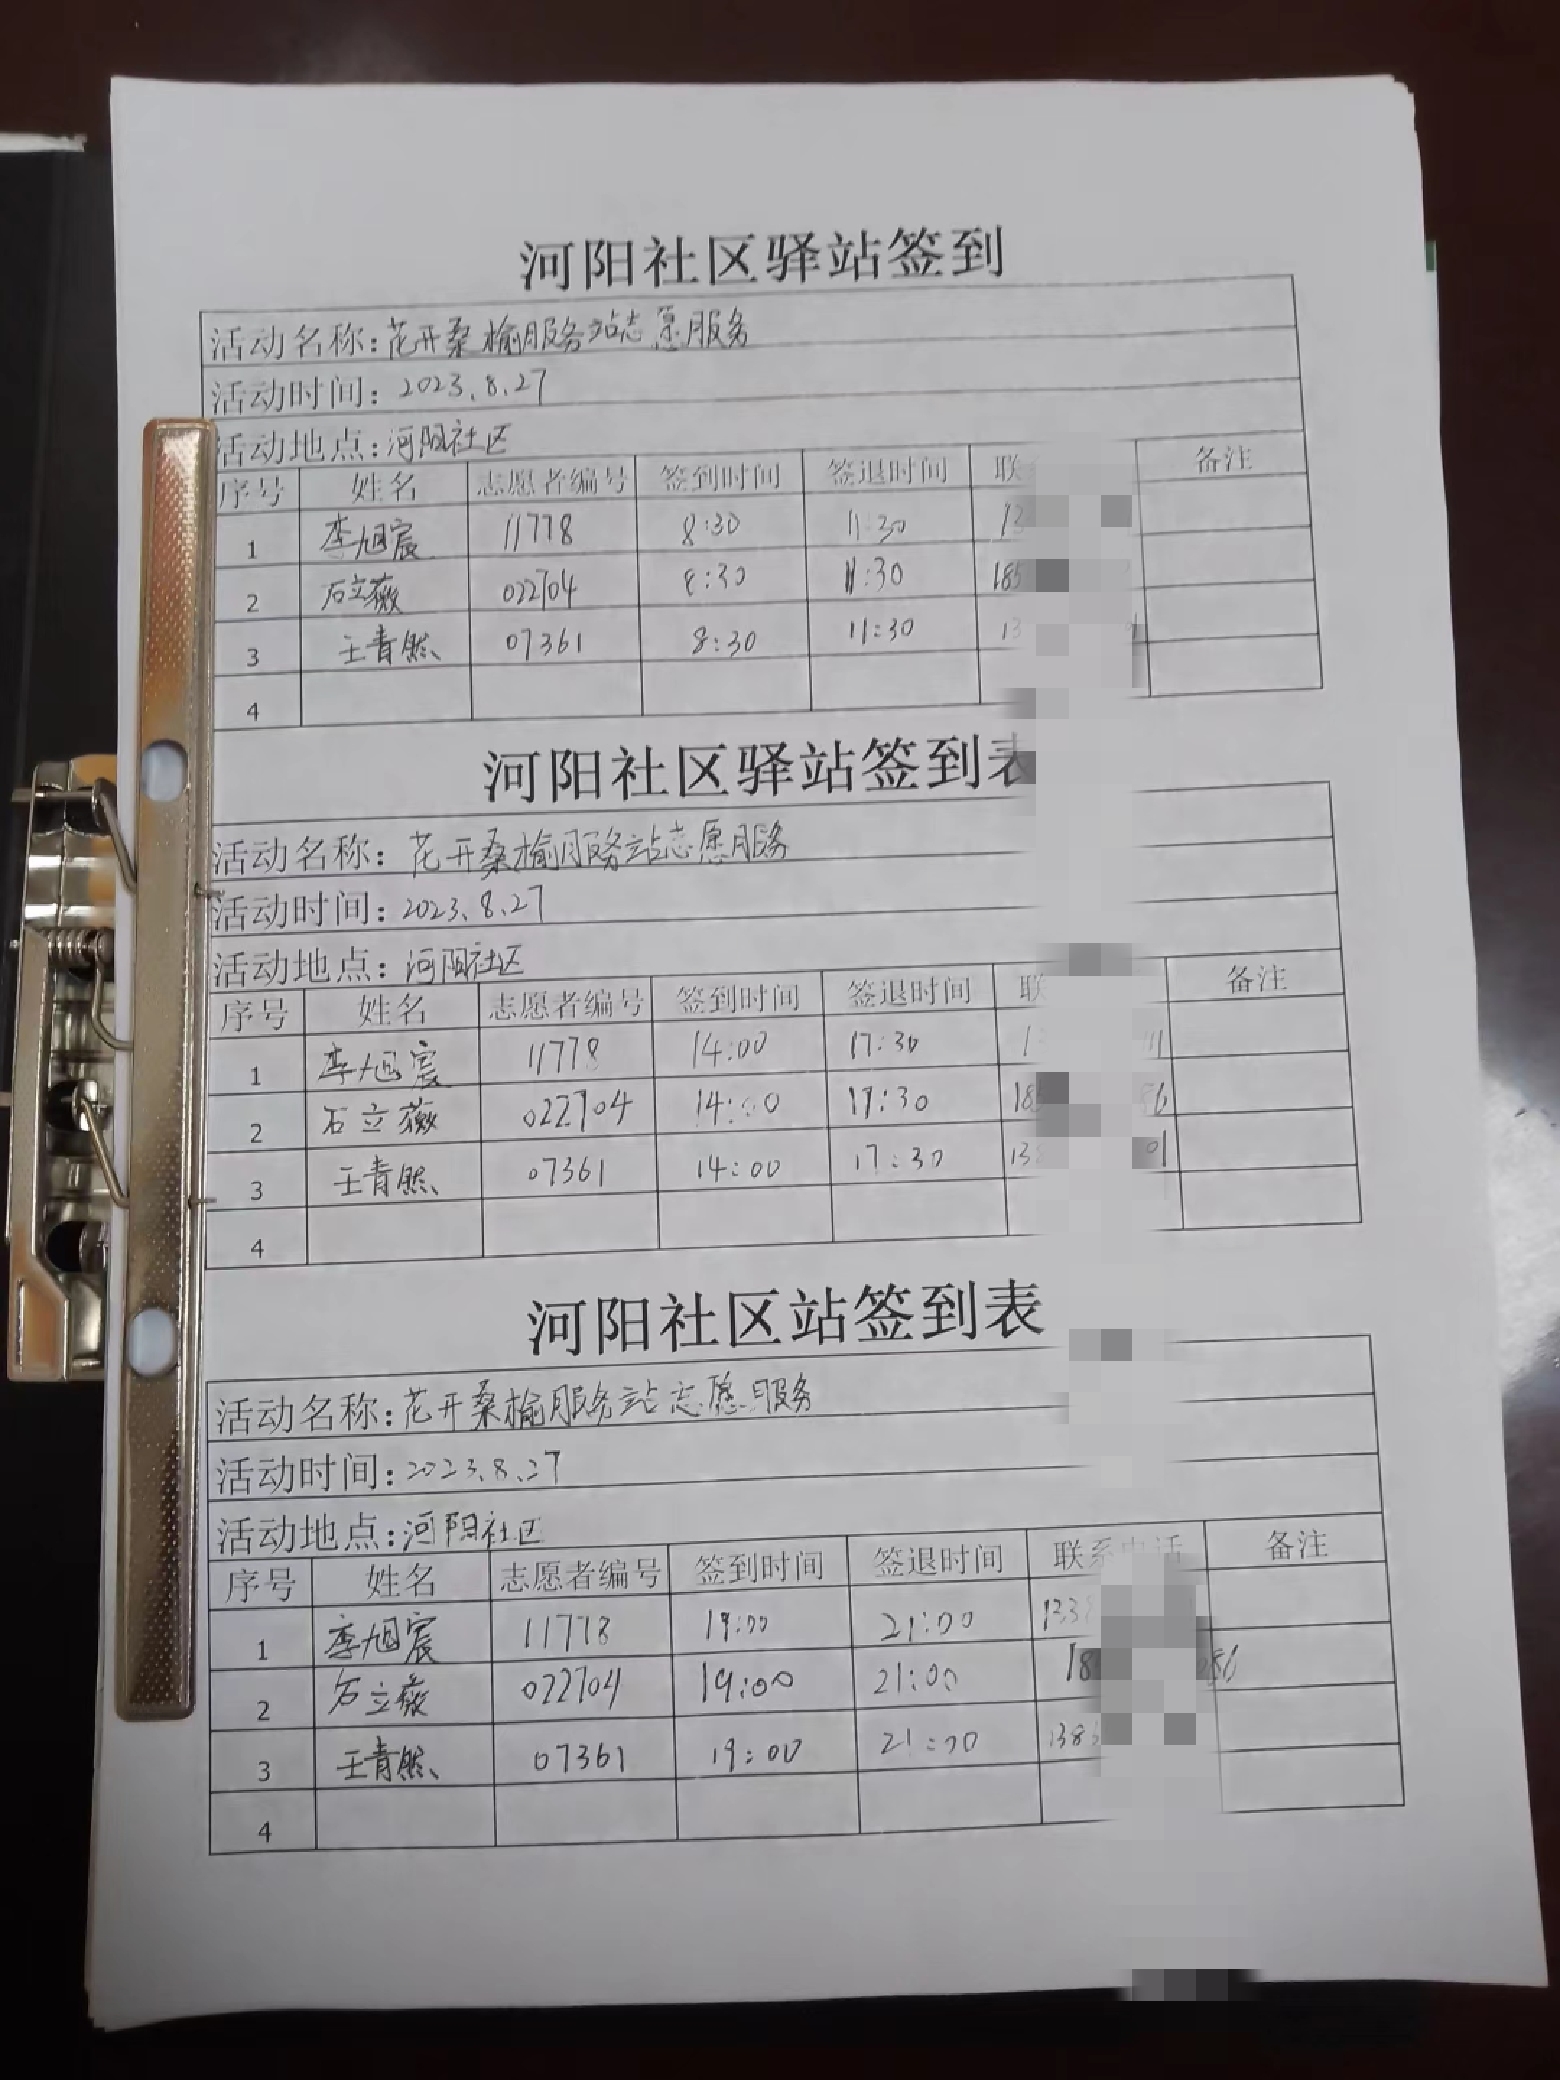 河阳社区驿站签到
活动名称:花开桑榆服务站志愿服务
活动时间:2023.8.27
活动地点:河阳社区
序号 姓名 志愿者编号 签到时间 签退时间 联 备注
1 李旭宸 11778 8:30 11:30 13
2 石立薇 022704 8:30 11:30 185
3 王青熙 07361 8:30 11:30 13
4
河阳社区驿站签到表
活动名称:花开桑榆服务站志愿服务
活动时间:2023.8.27
活动地点:河阳社区
序号 姓名 志愿者编号 签到时间 签退时间 联 备注
1 李旭宸 11778 14:00 17:30 1
2 石立薇 022704 14:00 17:30 18
3 王青熙 07361 14:00 17:30 13 01
4
河阳社区站签到表
活动名称:花开桑榆服务站志愿服务
活动时间:2023.8.27
活动地点:河阳社区
序号 姓名 志愿者编号 签到时间 签退时间 联系电话 备注
1 李旭宸 11778 19:00 21:00 133
2 石立薇 022704 19:00 21:00 18
3 王青熙 07361 19:00 21:00 138
4